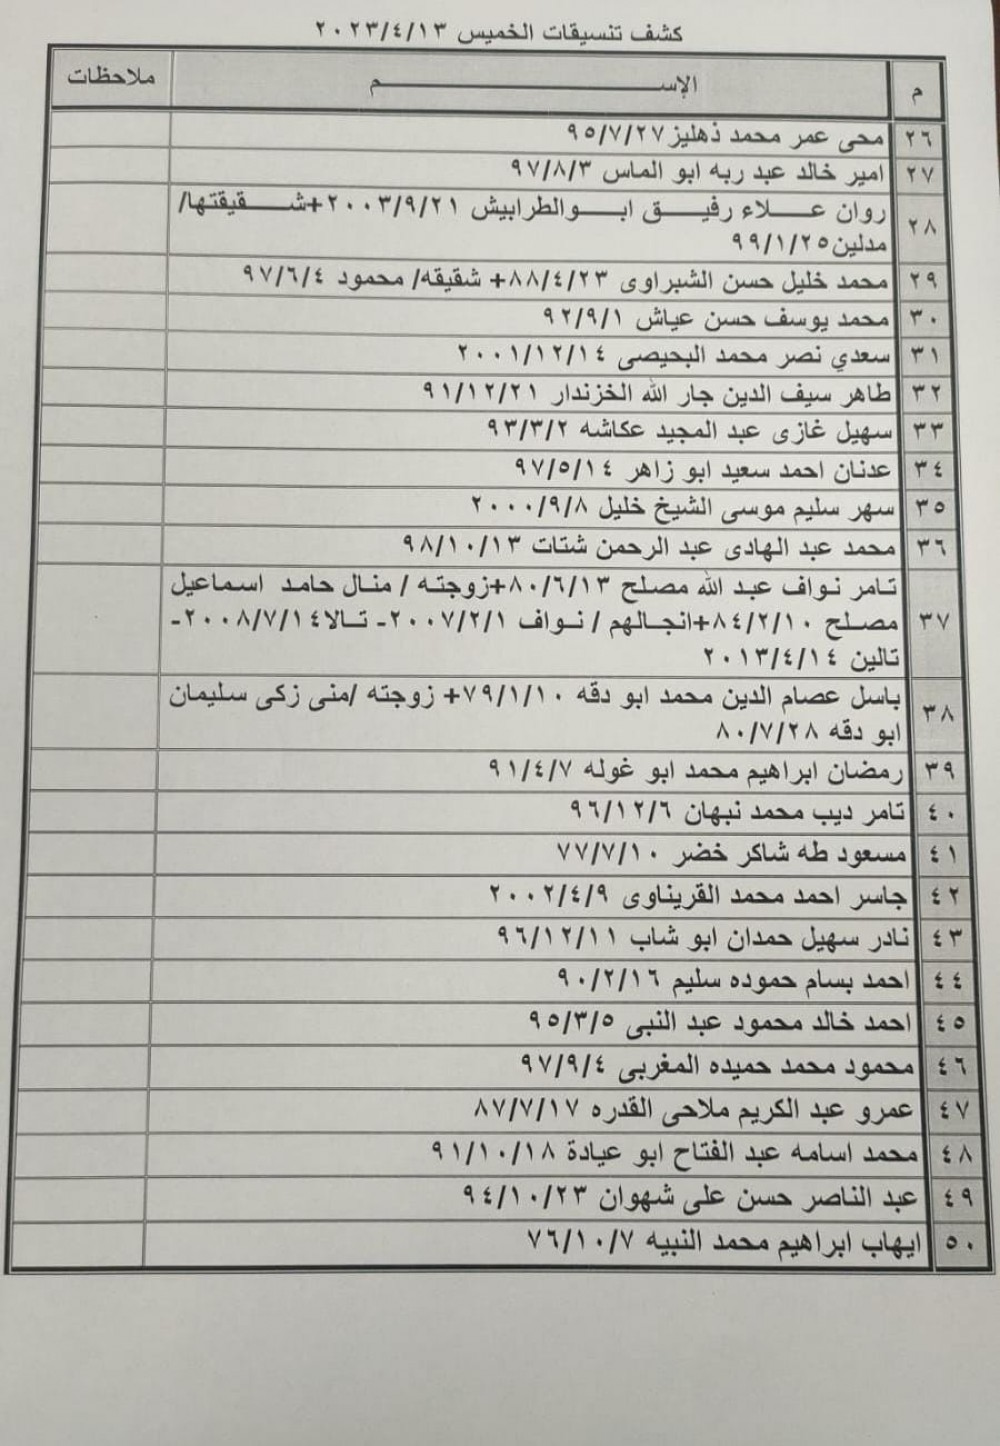 كشف تنسيقات الخميس ٢٠٢٣/٤/١٣
م الإســـــم ملاحظات
٢٦ محى عمر محمد ذهليز ٩٥/٧/٢٧
٢٧ امير خالد عبد ربه ابو الماس ٩٧/٨/٣
٢٨ روان عـــلاء رفيـــق ابـــوالطرابيش ٢٠٠٣/٩/٢١+شـــقيقتها/
مدلين٩٩/١/٢٥
٢٩ محمد خليل حسن الشبراوى ٨٨/٤/٢٣+ شقيقه/ محمود ٩٧/٦/٤
٣٠ محمد يوسف حسن عياش ٩٢/٩/١
٣١ سعدي نصر محمد البحيصى ٢٠٠١/١٢/١٤
٣٢ طاهر سيف الدين جار الله الخزندار ٩١/١٢/٢١
٣٣ سهيل غازى عبد المجيد عكاشه ٩٣/٣/٢
٣٤ عدنان احمد سعيد ابو زاهر ٩٧/٥/١٤
٣٥ سهر سليم موسى الشيخ خليل ٢٠٠٠/٩/٨
٣٦ محمد عبد الهادى عبد الرحمن شتات ٩٨/١٠/١٣
٣٧ تامر نواف عبد الله مصلح ٨٠/٦/١٣+زوجته / منال حامد اسماعيل
مصلح ٨٤/٢/١٠+انجالهم / نواف ٢٠٠٧/٢/١- تالا٢٠٠٨/٧/١٤-
تالين ٢٠١٣/٤/١٤
٣٨ باسل عصام الدين محمد ابو دقه ٧٩/١/١٠+ زوجته /منى زكى سليمان
ابو دقه ٨٠/٧/٢٨
٣٩ رمضان ابراهيم محمد ابو غوله ٩١/٤/٧
٤٠ تامر ديب محمد نبهان ٩٦/١٢/٦
٤١ مسعود طه شاكر خضر ٧٧/٧/١٠
٤٢ جاسر احمد محمد القريناوى ٢٠٠٢/٤/٩
٤٣ نادر سهيل حمدان ابو شاب ٩٦/١٢/١١
٤٤ احمد بسام حموده سليم ٩٠/٢/١٦
٤٥ احمد خالد محمود عبد النبى ٩٥/٣/٥
٤٦ محمود محمد حميده المغربى ٩٧/٩/٤
٤٧ عمرو عبد الكريم ملاحى القدره ٨٧/٧/١٧
٤٨ محمد اسامه عبد الفتاح ابو عيادة ٩١/١٠/١٨
٤٩ عبد الناصر حسن على شهوان ٩٤/١٠/٢٣
٥٠ ايهاب ابراهيم محمد النبيه ٧٦/١٠/٧